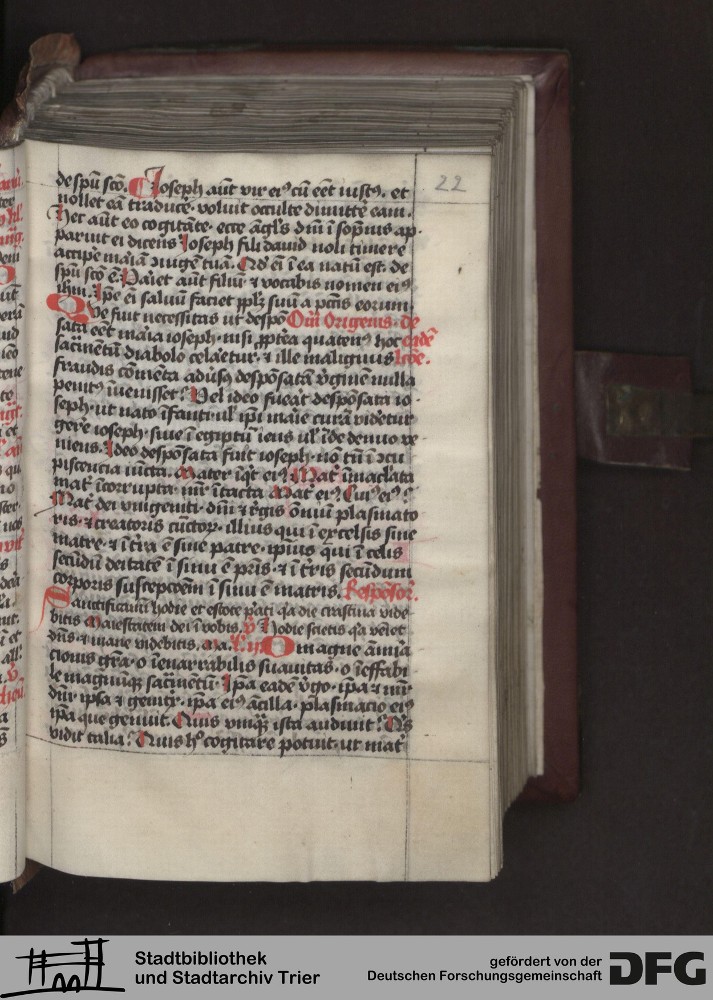 22
de spū sco. Joseph aūt vir eiꝰ cū eēt iustꝰ. et
nollet eā traducē. voluit occulte dimittē eam.
Hec aūt eo cogitāte. ecce āgls dnī ī sōpniis ap-
paruit ei dicens Joseph fili david noli timere
accipe maīā ꝯiugē tuā. Qd eī ī ea natū est. de
spū sco ē. Pariet aūt filiū. ⁊ vocabis nomen eiꝰ
ihm. Ipe eī saluū faciet pplm suū a pctis eorum.
Que fuit necessitas ut despō Om̄ Origenis. de
sata eēt maria ioseph. nisi ꝓpterea quatenꝰ hoc eadē
sacmentū diabolo celaretur. ⁊ ille malignus lcōe.
fraudis cōmenta adūsꝰ despōsatā v̓ginē nulla
penitꝰ īvenisset? Vel ideo fuerat despōsata io-
seph. ut nato īfanti. ul̓ ipi marie curā videretur
gerē ioseph. sive ī egiptū iens ul̓ īde denuo re-
niens. Ideo despōsata fuit ioseph. nō tn̄ ī ꝯcu
piscencia iūcta. Mater īqt eiꝰ. Mat̓ īmaclata
mat̓ īcorrupta. mr̄ ītacta. Mat̓ eiꝰ. Cuiꝰ eiꝰ?
Mat̓ dei unigeniti. dnī ⁊ regis omnium plasmato
ris. ⁊ creatoris cūctoꝝ. illius qui ī excelsis sine
matre. ⁊ ī t̓ra ē sine patre. ipius qui ī celis
secūdū deitatē ī sinu ē pr̄is. ⁊ ī t̓ris secūdum
corporis susceptōem ī sinu ē matris. Respōsor̄.
Sanctificamī hodie et estote pati. qa die crastina vide
bitis Maiestatem dei ī vobis. v̓ Hodie scietis qa veniet
dn̄s. ⁊ mane videbitis. Ma. O magne
cionis gr̄a. o īenarrabilis suavitas. o īeffabi
le magnūqꝫ sacm̄entū. Ipa eadē v̓go. ipa ⁊ mr̄
dnī. ipa ⁊ genitrix. ipa eiꝰ ācilla. plasmacio eiꝰ
ipa que genuit. Quis umqꝫ ista audivit? Qs
vidit talia? Quis h̓ cogitare potuit. ut mat̓
Stadtbibliothek
und Stadtarchiv Trier
gefördert von der
Deutschen Forschungsgemeinschaft
DFG